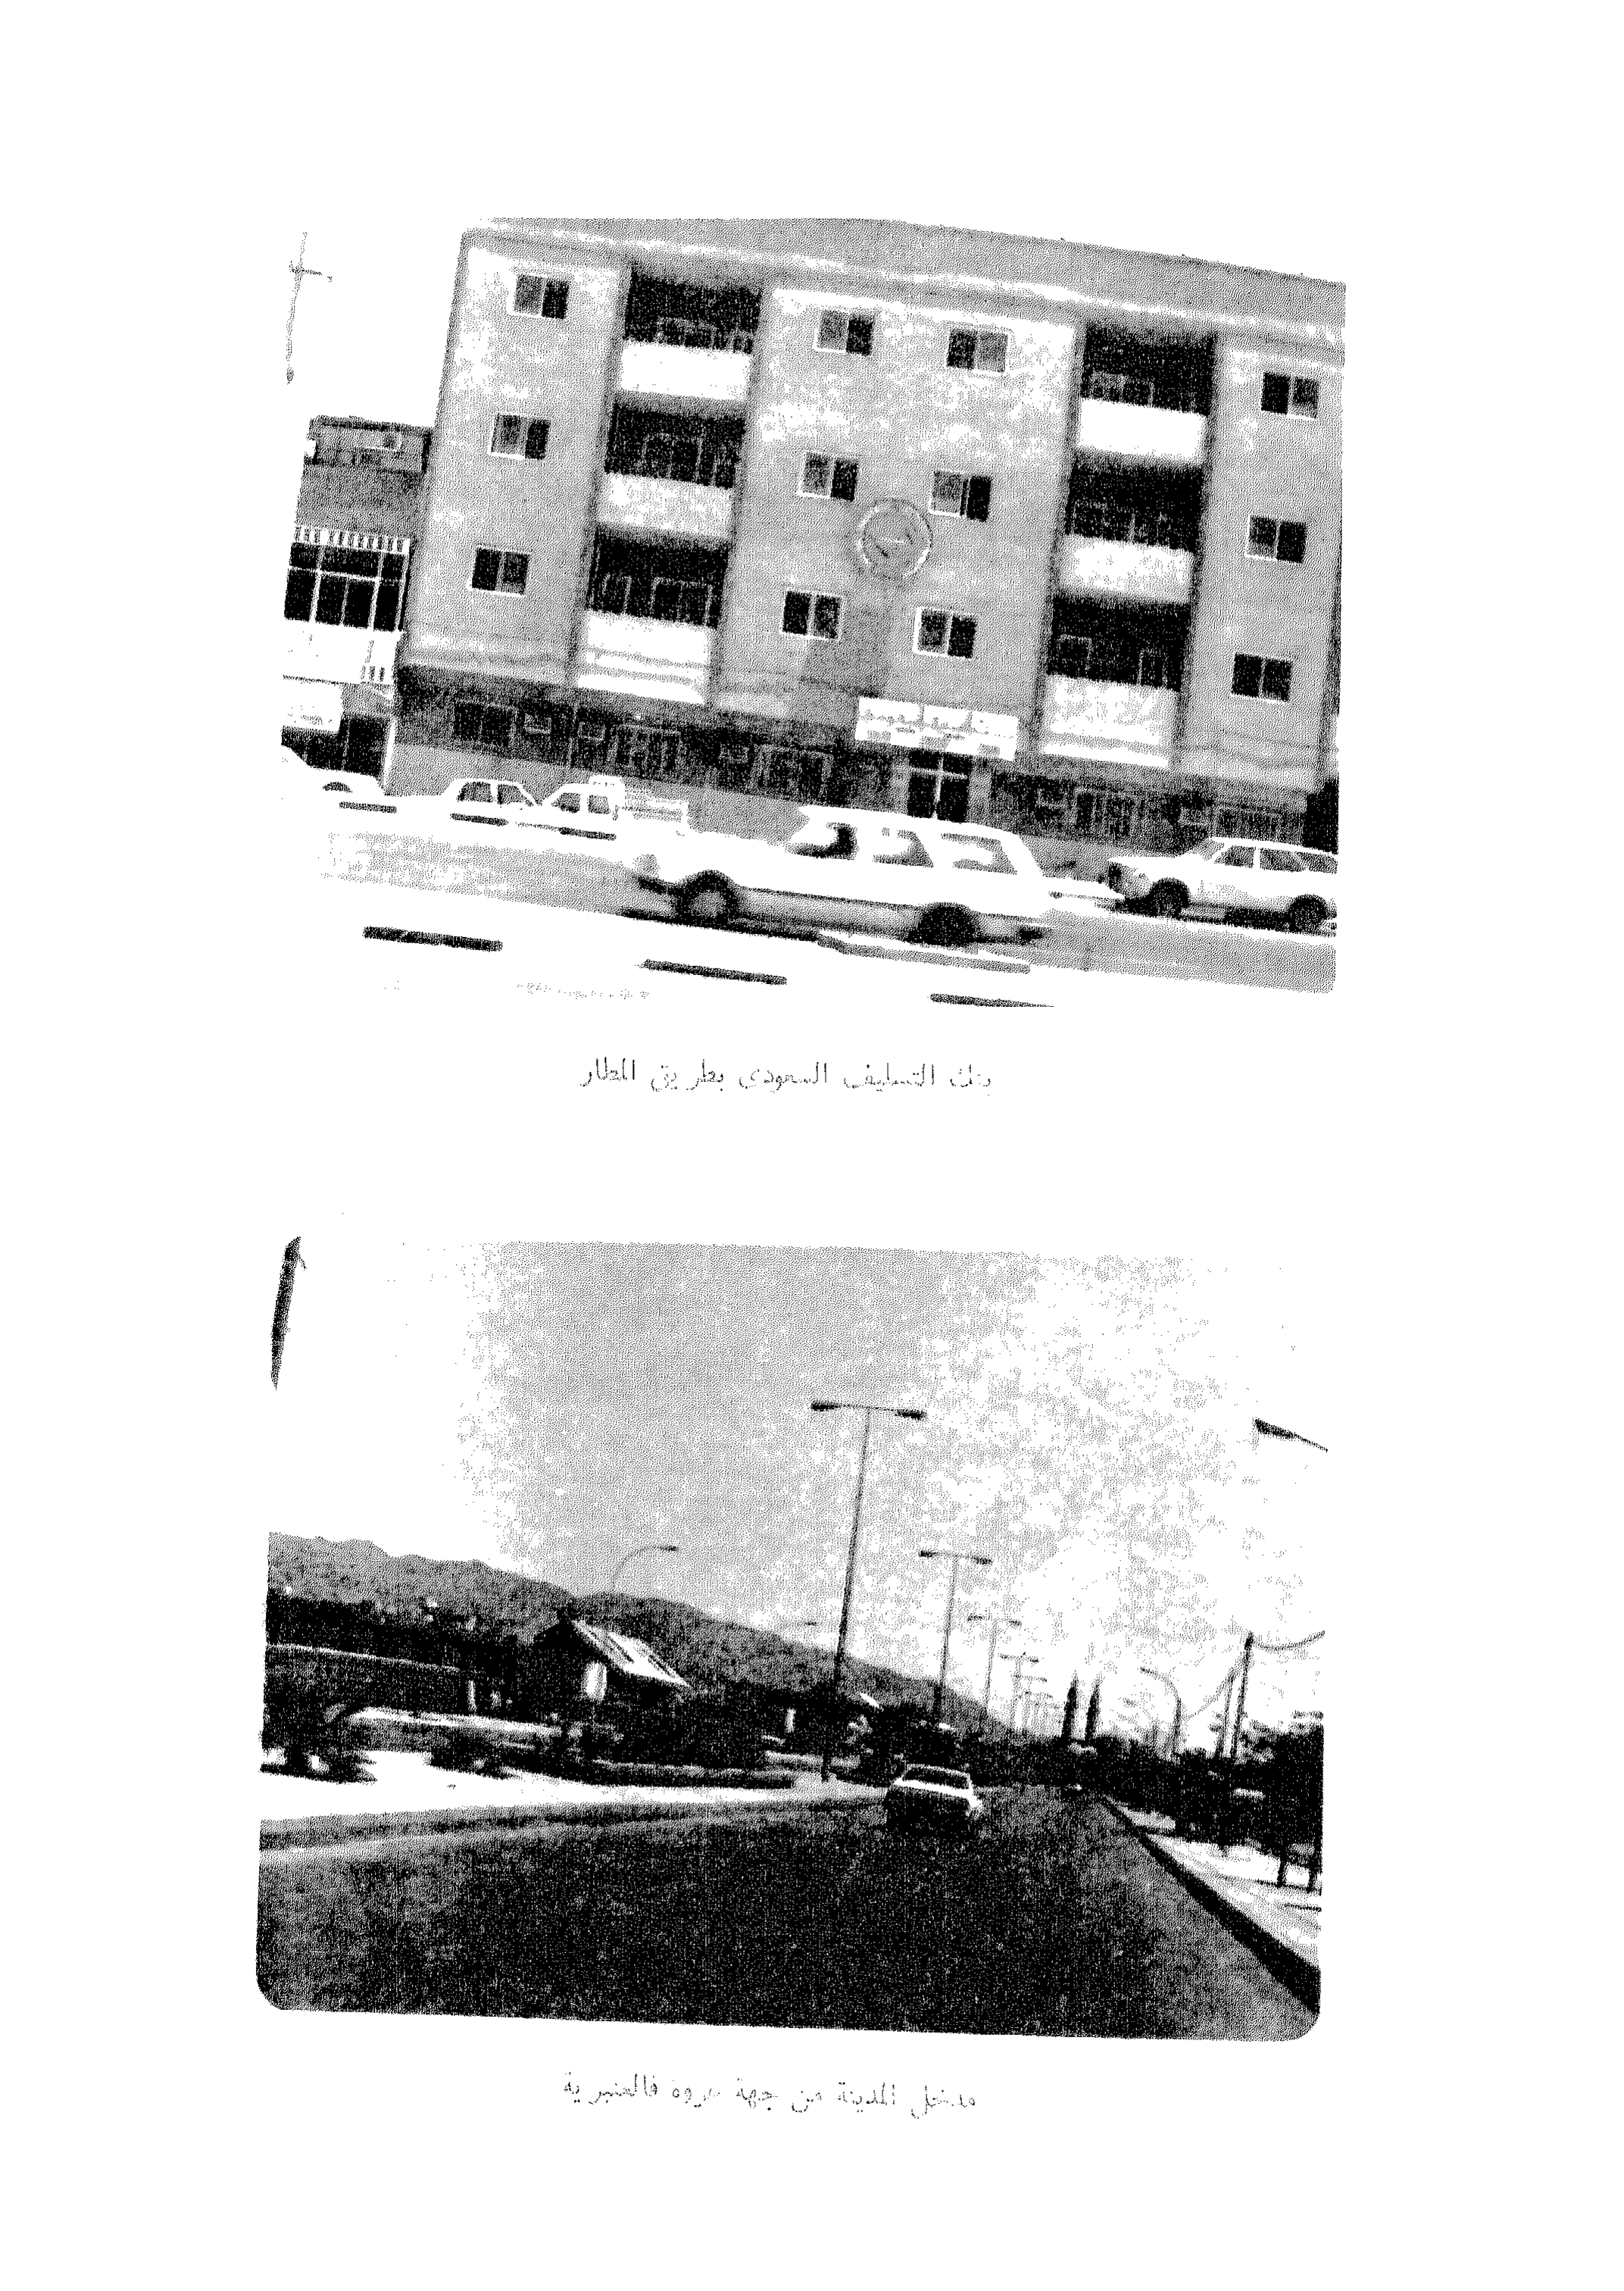 بنك التسليف السعودى بطريق المطار
مدخل المدينة من جهة عروة فالعنبرية